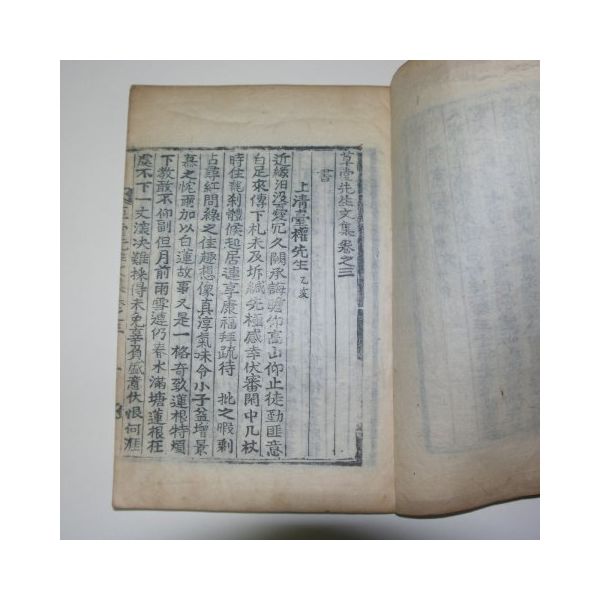 草堂先生文集卷之三
書
上清臺權先生 乙亥
近緣汨沒冗久闕承誨瞻仰高山仰止徒勤匪意
白足來傳下札未及坼緘先極感幸伏審閒中几杖
時住毗剎體候起居連享康福拜疏待 批之暇剩
占尋紅問綠之佳趣想像真淳氣味令小子益增景
慕之忱爾加以白蓮故事又是一格奇致蓮根特煩
下敎敢不仰副但月前雨雪遽仍春水滿塘蓮根在
處不下一丈深決難採得未免辜負盛意伏恨何